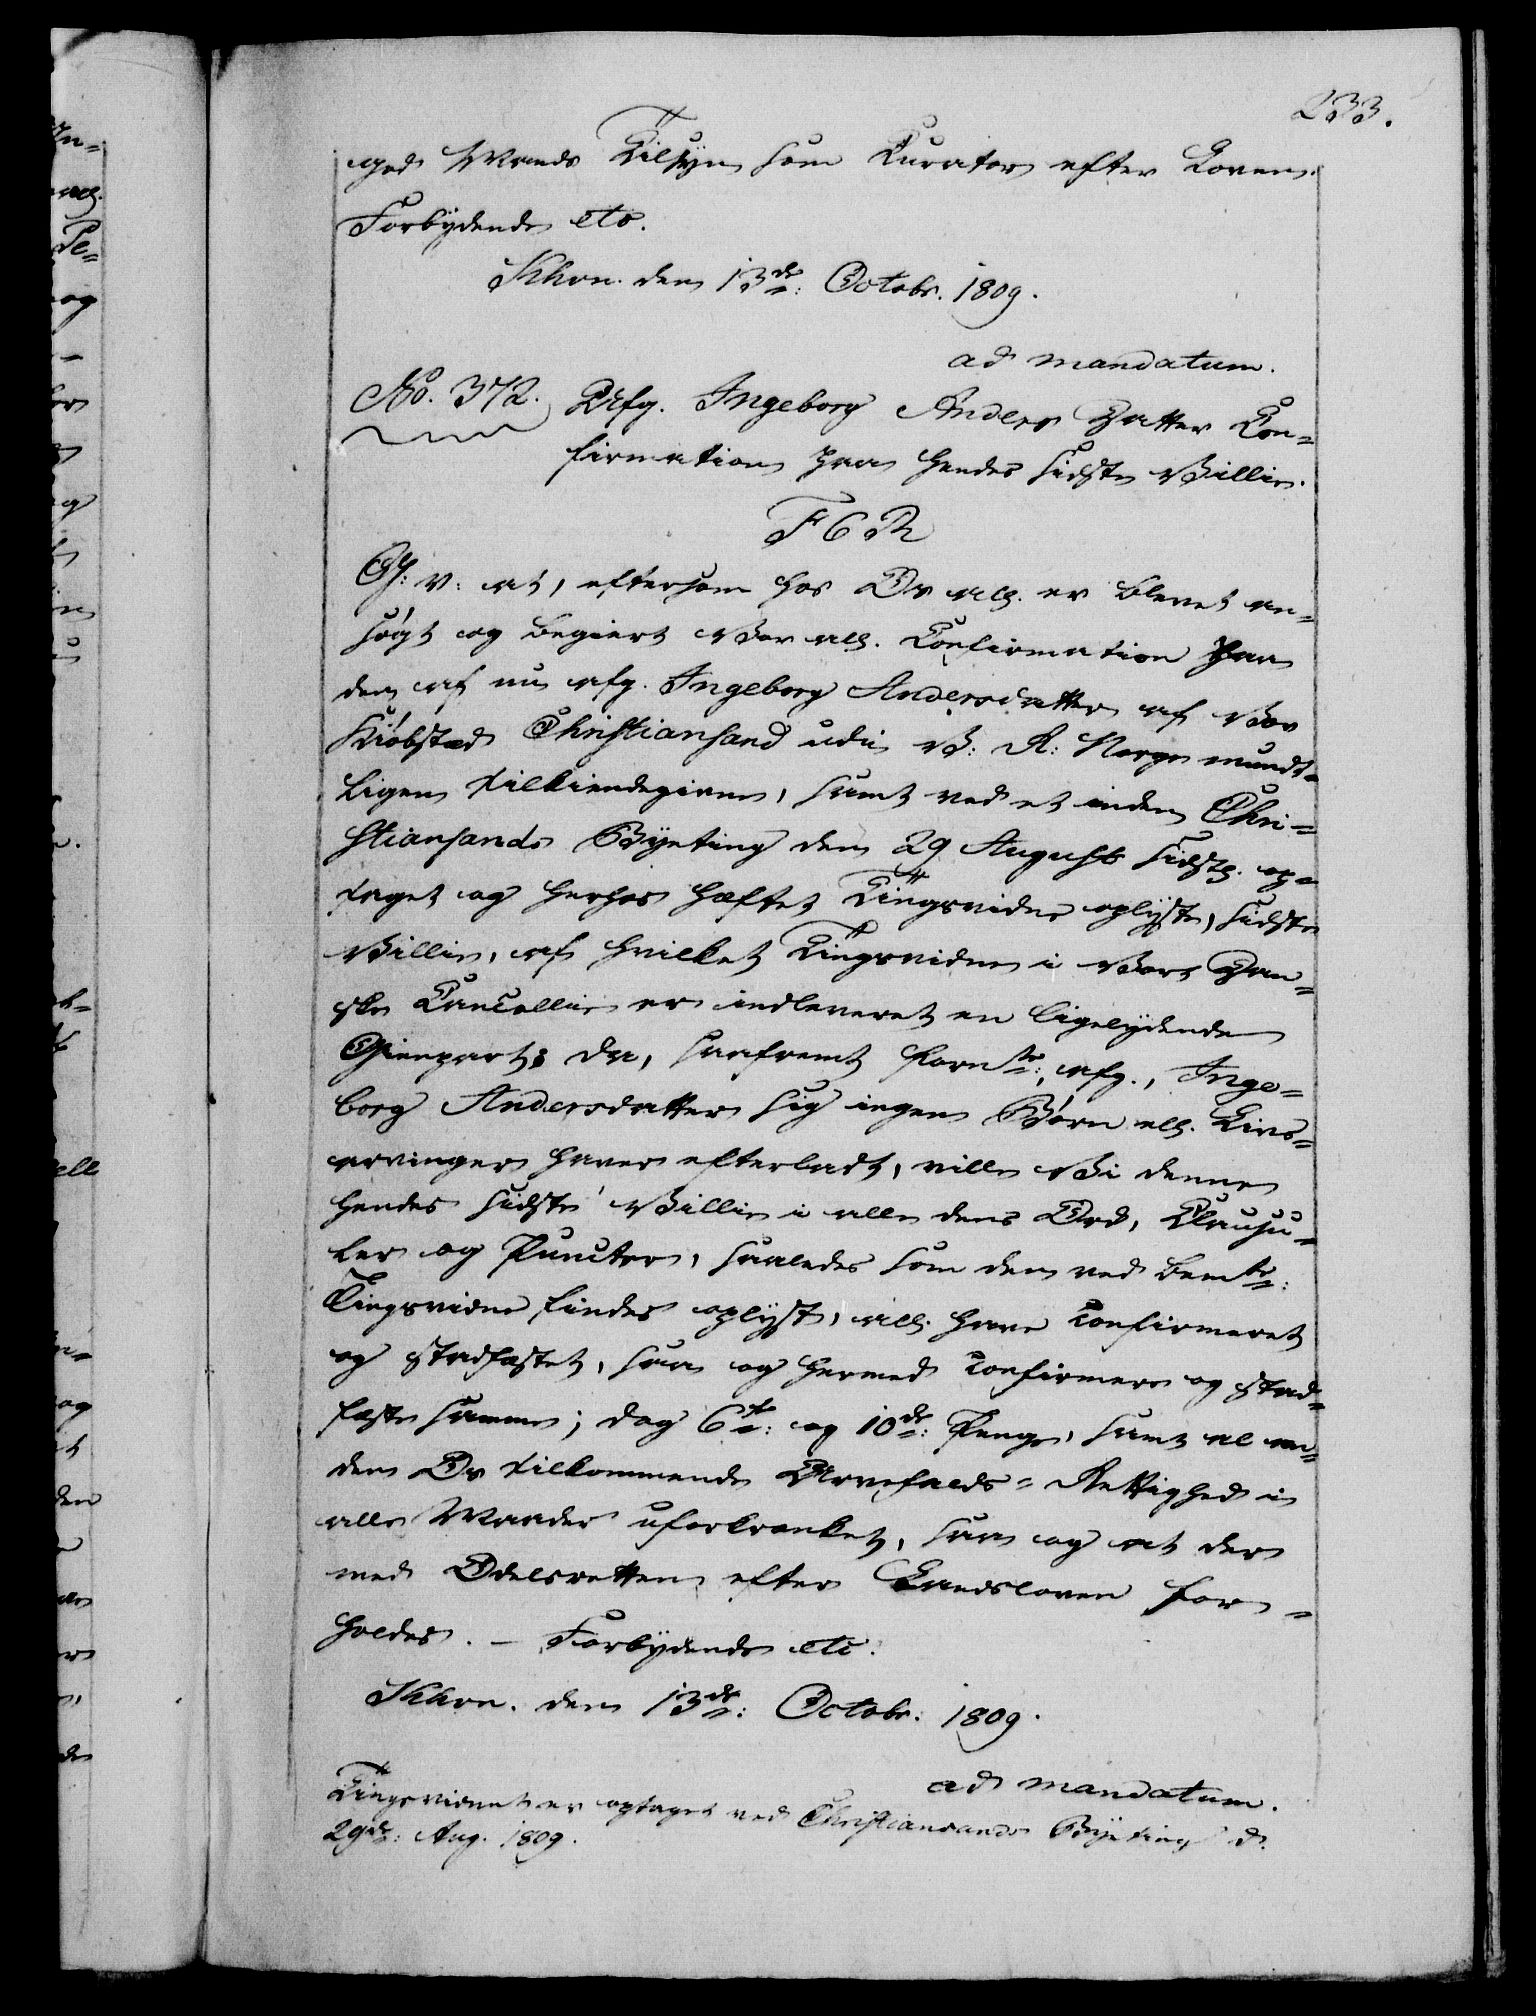 233.
god Mands Tilsyn som Curator efter Loven.
Forbydende etc.
Khvn. den 13de: Octobr. 1809.
ad mandatum.
No. 372. Afg. Ingeborg Anders Datter Con=
firmation paa hendes sidste Villie.
F 6 R
G: v: at, eftersom hos Os all. er blevet an=
søgt og begiert Vor all. Confirmation paa
den af nu afg. Ingeborg Andersdatter af Vor
Kiøbstæd Christiansand udi V: R: Norge mundt=
ligen tilkiendegivne, samt ved et inden Chri=
stiansands Byeting den 29 August sidstl. op=
taget og herhos hæftet Tingsvidne oplyste, sidste
Villie, af hvilket Tingsvidne i Vort Dan=
ske Cancellie er indleveret en ligelydende
Gienpart; da, saafremt fornte:, afg., Inge=
borg Andersdatter sig ingen Børn ell. Livs=
arvinger haver efterladt, ville Vi denne
hendes sidste Villie i alle dens Ord, Clausu=
ler og Puncter, saaledes som den ved bemte:
Tingsvidne findes oplyst, all. have Confirmeret
og stadfæstet, saa og hermed Confirmere og stad=
fæste samme; dog 6te: og 10de: Penge, samt al an=
den Os tilkommende Arvefalds= Rettighed i
alle Maader uforkrænket, saa og at der
med Odelsretten efter Landsloven for=
holdes. – Forbydende etc.
Khvn. den 13de: Octobr. 1809.
ad mandatum.
Tingsvidnet er optaget ved Christiansands Byeting d.
29de: Aug. 1809.